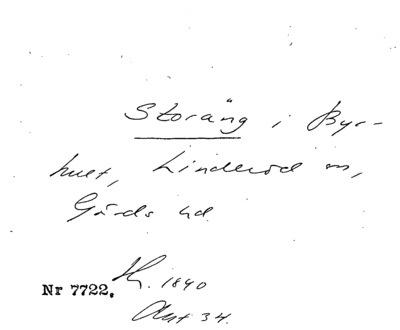 Storäng i Byr-
hult, Linderöd sn,
Gärds hd.
Nr 7722. 1840
Akt 34.